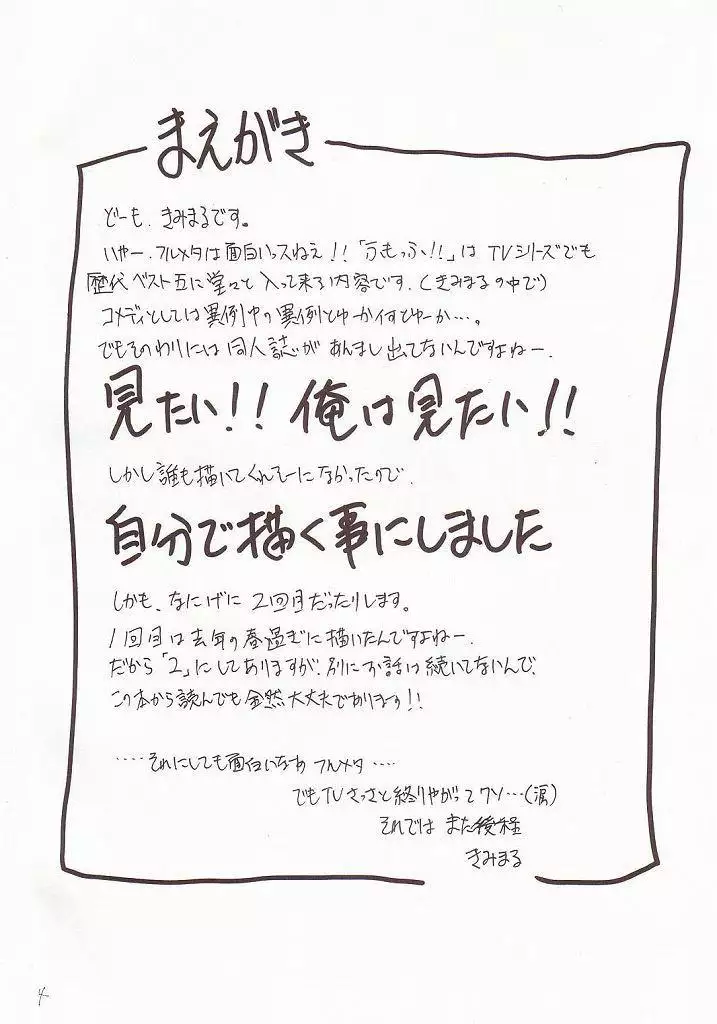 まえがき
どーも、きみまるです。
いやー、フルメタは面白いっスねえ!!「ふもっふ!!」は TVシリーズでも
歴代ベスト五に堂々と入って来る内容です.(きみまるの中で)
コメディとしては異例中の異例とゆーかイすとゆーか…。
でもそのわりには同人誌があんまし出てないんですよねー.
見たい!! 俺は見たい!!
しかし誰も描いてくれそーになかったので、
自分で描く事にしました
しかも、なにげに 2回目だったりします。
1回目は去年の春過ぎに描いたんですよねー.
だから「2」にしてありますが、別にお話は続いてないんで、
この本から読んでも全然大丈夫であります!!
....それにしても面白いなあ フルメタ....
でもTVさっさと終りやがってクソ…(涙)
それでは また後程
きみまる
4